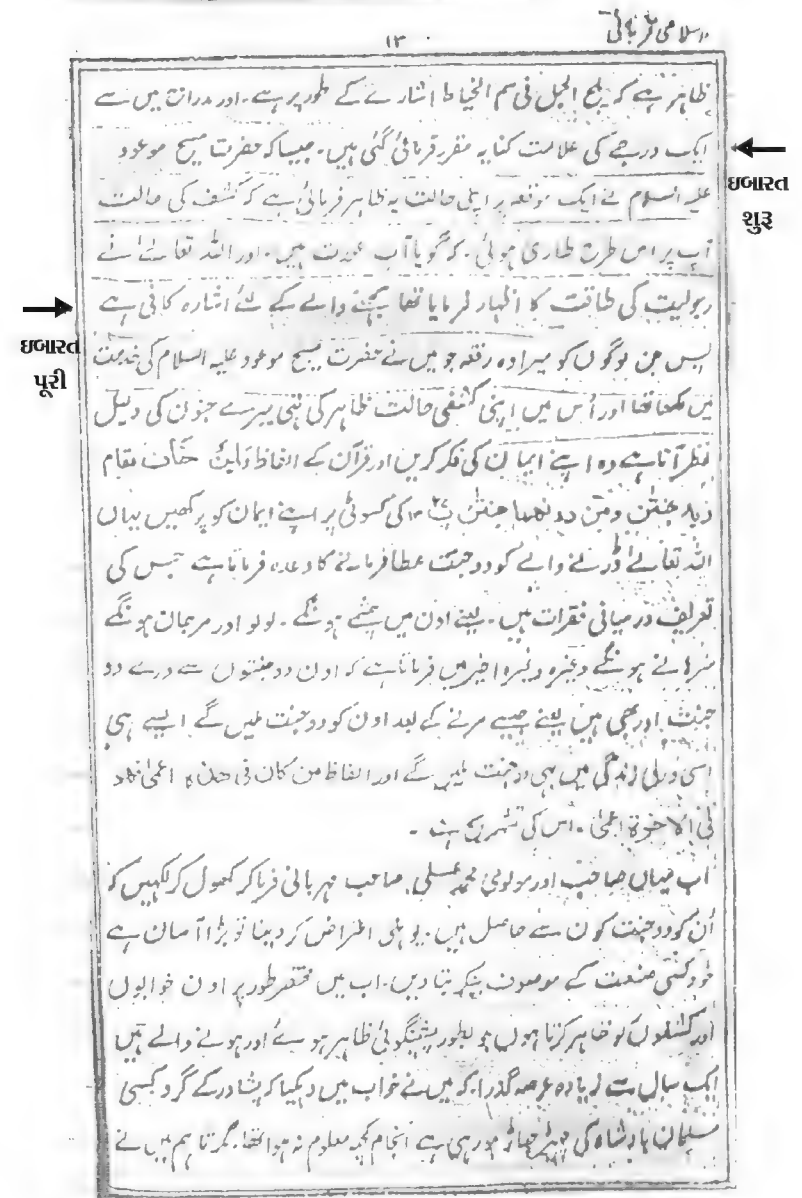 اسلامی قربانی
۱۳
ظاہر ہے کہ یلج الجمل فی سم الخیاط اشارے کے طور پر ہے۔ اور مدارج میں سے
ایک درجے کی علامت کنایہ مقرر فرمائی گئی ہیں۔ جیسا کہ حضرت مسیح موعود
علیہ السلام نے ایک موقعہ پر اپنی حالت یہ ظاہر فرمائی ہے کہ کشف کی حالت
آپ پر اس طرح طاری ہوئی۔ کہ گویا آپ عورت ہیں۔ اور اللہ تعالےٰ نے
رجولیت کی طاقت کا اظہار فرمایا تھا سمجھنے والے کے لئے اشارہ کافی ہے
پس جن لوگوں کو میرا وہ رقعہ جو میں نے حضرت مسیح موعود علیہ السلام کی خدمت
میں لکھا تھا اور اُس میں اپنی کشفی حالت ظاہر کی تھی میرے جنون کی دلیل
نظر آتا ہے وہ اپنے ایمان کی فکر کریں اور قرآن کے الفاظ ولمن خاف مقام
ربہ جنتٰن ومن دونھما جنتٰن کی کسوٹی پر اپنے ایمان کو پرکھیں یہاں
اللہ تعالےٰ ڈرنے والے کو دو جنت عطا فرمانے کا وعدہ فرماتا ہے جس کی
تعریف درمیانی فقرات ہیں۔ یعنے اون میں چشمے ہونگے۔ لولو اور مرجان ہونگے
ہونگے وغیرہ وغیرہ اخیر میں فرماتا ہے کہ اون دو جنتوں سے ورے دو
جنت اور بھی ہیں یعنے جیسے مرنے کے بعد اون کو دو جنت ملیں گے ایسے ہی
اسی زندگی میں بھی دو جنت ملیں گے اور الفاظ من کان فی ھذہ اعمیٰ فھو
فی الاخرۃ اعمیٰ۔ اس کی تشریح ہے۔
اب میاں صاحب اور مولوی محمد علی صاحب مہربانی فرما کر کھول کر لکھیں کہ
اُن کو دو جنت کون سے حاصل ہیں۔ یونہی اعتراض کر دینا تو بڑا آسان ہے
خود کسی صنعت کے موصوف بنکر بتا دیں۔ اب میں مختصر طور پر اون خوابوں
اور کشفوں کو ظاہر کرتا ہوں جو بطور پیشگوئی ظاہر ہوئے اور ہونے والے ہیں
ایک سال سے زیادہ عرصہ گذرا۔ کہ میں نے خواب میں دیکھا کہ پشاور کے گرد کسی
مسلمان بادشاہ کی ہو رہی ہے انجام کچھ معلوم نہ ہوا تھا۔ مگر تاہم میں نے
ઇબારત
શુરૂ
ઇબારત
પૂરી